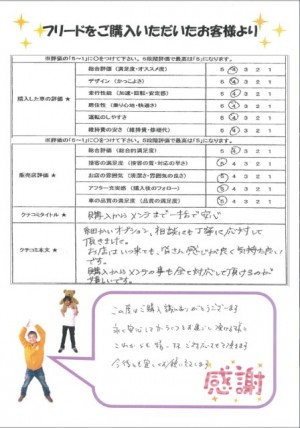 フリードをご購入いただいたお客様より
※評価の「5～1」に○をつけて下さい。5段階評価で最高は「5」になります。
購入した車の評価 ★
総合評価（満足度・オススメ度） 5 4 3 2 1
デザイン（かっこよさ） 5 4 3 2 1
走行性能（加速・回転・安定感） 5 4 3 2 1
居住性（乗り心地・快適さ） 5 4 3 2 1
運転のしやすさ 5 4 3 2 1
維持費の安さ（維持費・修理代） 5 4 3 2 1
※評価の「5～1」に○をつけて下さい。5段階評価で最高は「5」になります。
販売店評価 ★
総合評価（総合的満足度） 5 4 3 2 1
接客の満足度（接客の質・対応の早さ） 5 4 3 2 1
お店の雰囲気（清潔さ・雰囲気の良さ） 5 4 3 2 1
アフター充実感（購入後のフォロー） 5 4 3 2 1
車の品質の満足度（品質の満足度） 5 4 3 2 1
クチコミタイトル ★
購入からメンテまで一括で安心
クチコミ本文 ★
細かいオプション、相談にも丁寧に応対して
頂きました。
お店はいつ来ても、皆さん感じが良く気持ち良い
です。
購入からメンテの事も全て対応して頂けるのが
嬉しいです。
この度はご購入誠にありがとうございます
今後も
感謝